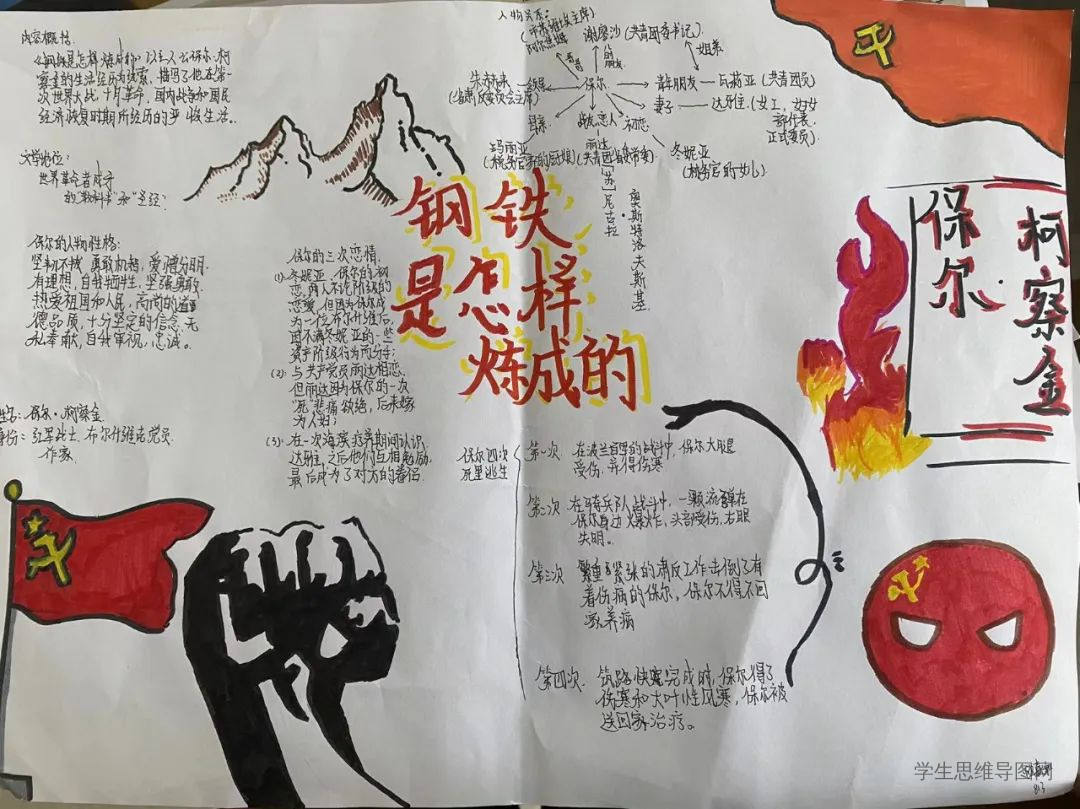 内容概括:
《钢铁是怎样炼成的》以主人公保尔·柯
察金的生活经历为线索，描写了他在第一
次世界大战、十月革命、国内战争和国民
经济恢复时期所经历的严峻生活。
文学地位:
世界革命者成才
的“教科书”和“圣经”
保尔的人物性格:
坚韧不拔 勇敢机智，爱憎分明
有理想，自我牺牲，坚强勇敢
热爱祖国和人民，高尚的道
德品质，十分坚定的信念，无
私奉献，自我审视，忠诚。
姓名: 保尔·柯察金
身份: 红军战士、布尔什维克党员
作家
保尔的三次恋情
(1): 冬妮亚，保尔的初
恋，两人不论阶级的
恋爱，但因为保尔成
为一位布尔什维克后，
因不满冬妮亚的一些
资产阶级行为而分手;
(2): 与共产党员丽达相恋，
但丽达因为保尔的一次
“死”悲痛欲绝，后来嫁
为人妇;
(3): 在一次海滨疗养期间认识
达雅，之后他们互相勉励
最后成为了对方的着侣.
人物关系:
(市苏维埃主席)
阿尔焦姆
哥哥
谢廖沙 (共青团委书记)
的朋友
姐弟
朱赫来
(省肃反委员会主席)
领导
保尔
青年朋友
瓦莉亚 (共青团员)
妻子
达雅 (女工，妇女
部代表，
正式委员)
母亲
玛丽亚
战友恋人
丽达
(共青团省委常委)
初恋
冬妮亚
(林务官的女儿)
[苏] 尼古拉·
奥斯特洛夫斯基
钢铁
是怎样
炼成的
保尔
柯察金
保尔四次
死里逃生
第一次 在波兰首里的战斗中，保尔大腿
受伤，并得伤寒
第二次 在骑兵队战斗中，一颗流弹在
保尔身边爆炸，头部受伤，右眼
失明。
第三次 繁重又紧张的肃反工作击倒了有
着伤病的保尔，保尔不得不回
家养病
第四次 筑路快要完成时，保尔得了
伤寒和大叶性风寒，保尔被
送回家治疗。
学生思维导图网
813